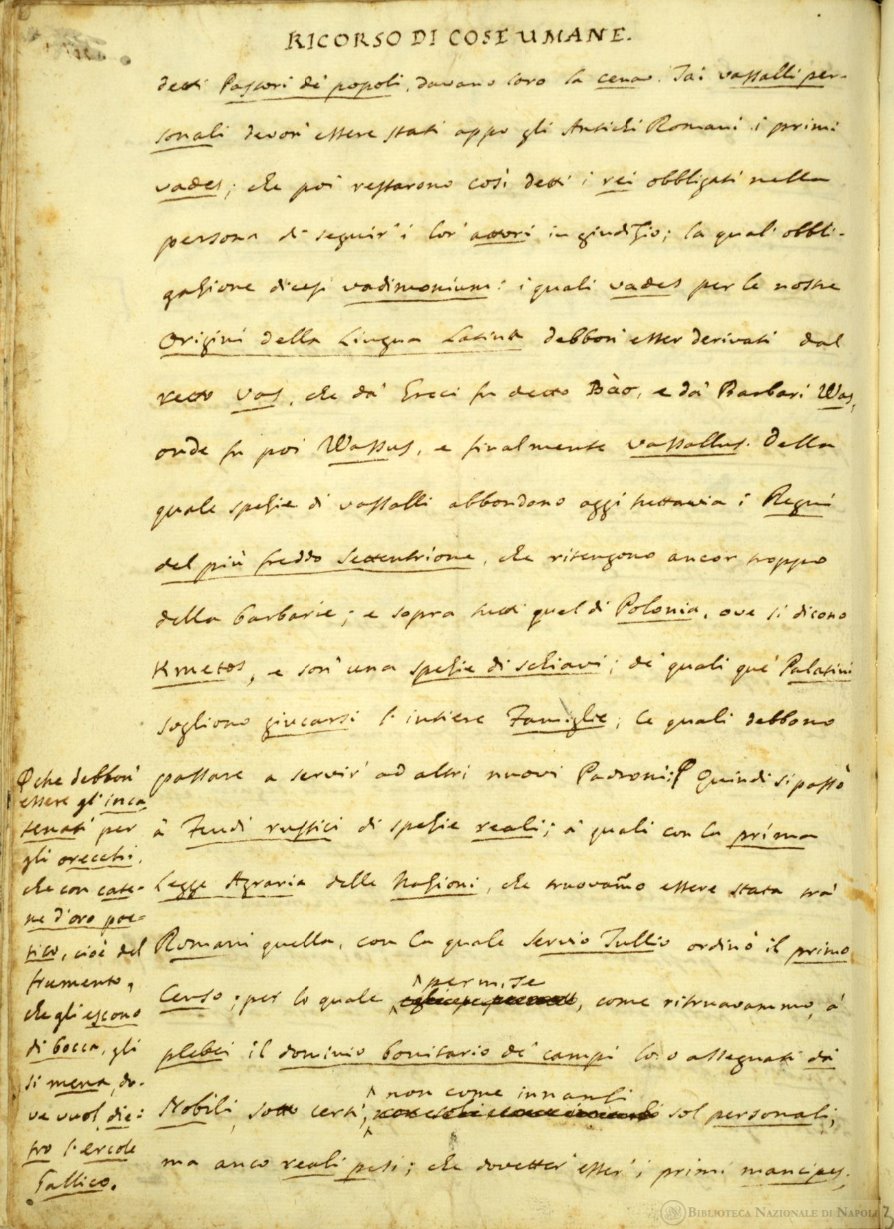 RICORSO DI COSE UMANE.
detti Pastori de' popoli, davano loro la cena. Tai vassalli per-
sonali devon' essere stati appo gli Antichi Romani i primi
vades; che poi restarono così detti i rei obbligati nella
persona di seguir' i lor' attori in giudizio; la qual' obbli-
gazione dicesi vadimonium: i quali vades per le nostre
Origini della Lingua Latina debbon' esser derivati dal
retto vas, che da' Greci fu detto Bàs, e da' Barbari Was,
onde fu poi Wassus, e finalmente vassallus. Della
quale spezie di vassalli abbondano oggi tuttavia i Regni
del più freddo Settentrione, che ritengono ancor troppo
della barbarie; e sopra tutti quel di Polonia, ove si dicono
Kmetos, e son' una spezie di schiavi; de' quali que' Palatini
sogliono giucarsi l'intiere Famiglie; le quali debbono
passare a servir' ad altri nuovi Padroni: Quindi si passò
à Feudi rustici di spezie reali; à quali con la prima
Legge Agraria delle Nazioni, che truovam̃o essere stata tra'
Romani quella, con la quale Servio Tullio ordinò il primo
Censo; per lo quale permise, come ritruovammo, à
plebei il dominio bonitario de' campi loro assegnati da'
Nobili, sotto certi, non come innanzi sol personali,
ma anco reali pesi; che dovetter' esser' i primi mancipes;
che debbon'
essere gl'inca
tenati per
gli orecchi,
che con cate-
ne d'oro poe-
tico, cioè del
frumento,
che gli escono
di bocca, gli
si mena, do-
ve vuol, die-
tro l'Ercole
Gallico.
BIBLIOTECA NAZIONALE DI NAPOLI